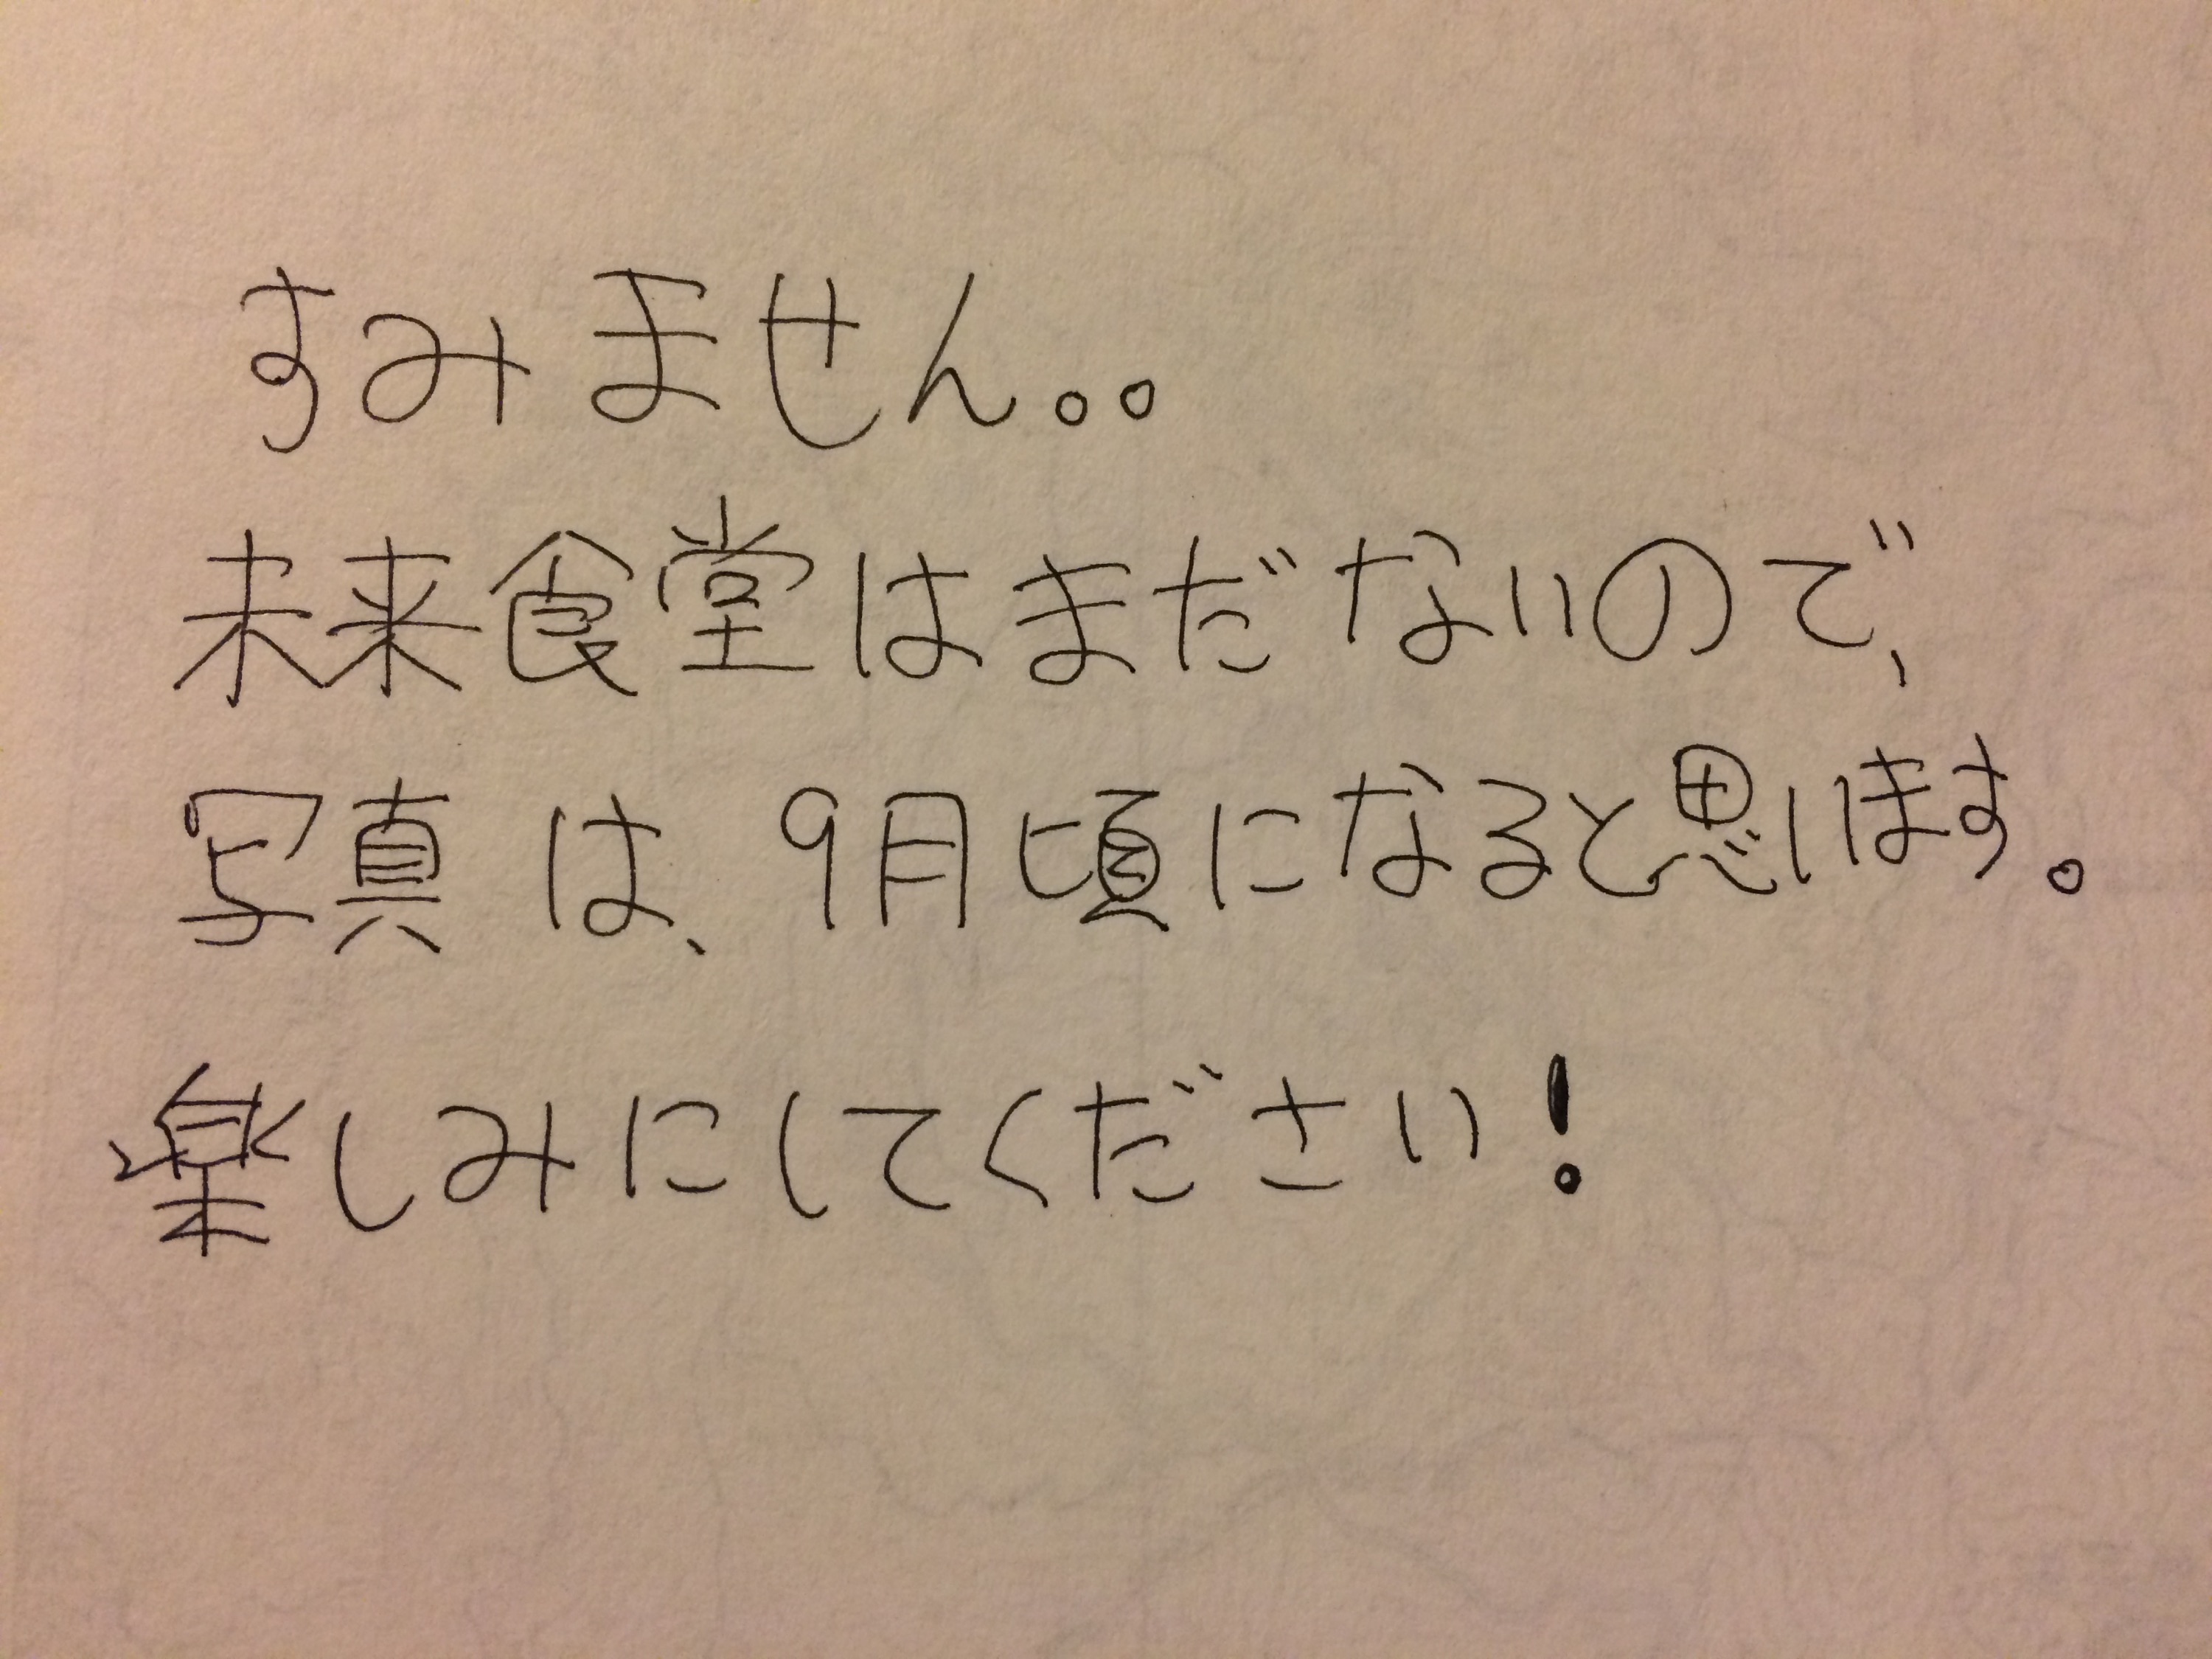 すみません。。
未来食堂はまだないので、
写真は、9月頃になると思います。
楽しみにしてください!